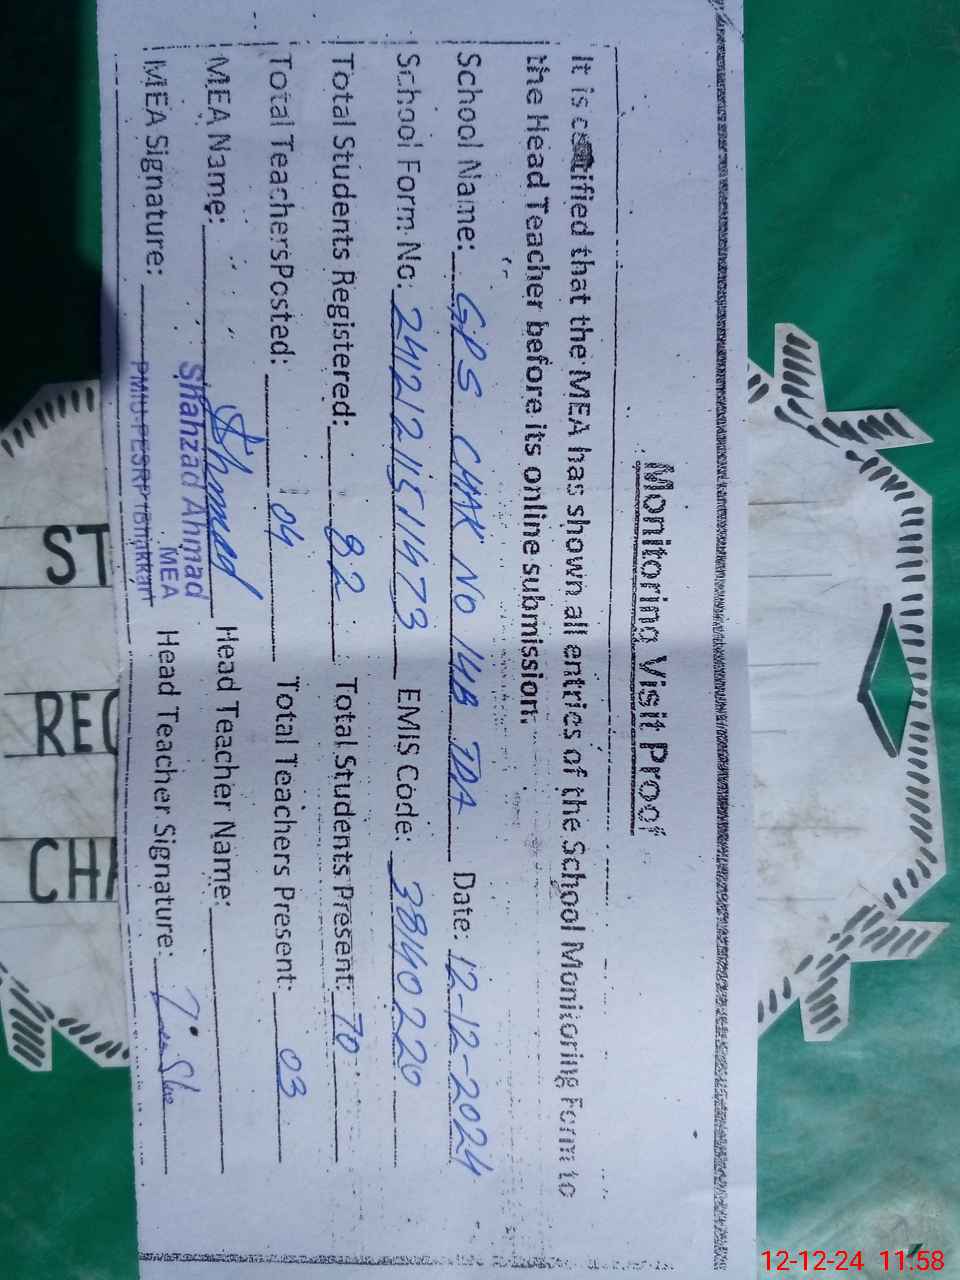 Monitoring Visit Proof
It is certified that the MEA has shown all entries of the School Monitoring Form to
the Head Teacher before its online submission.
School Name: GPS CHAK No 14B TDA Date: 12-12-2024
School Form No: 241212115111473 EMIS Code: 38140220
Total Students Registered: 82 Total Students Present: 70
Total Teachers Posted: 04 Total Teachers Present: 03
MEA Name: Head Teacher Name:
Shahzad Ahmad
MEA
MEA Signature: Head Teacher Signature:
PMIU-PESRP Bhakkar
ST
REG
CHA
12-12-24 11:58